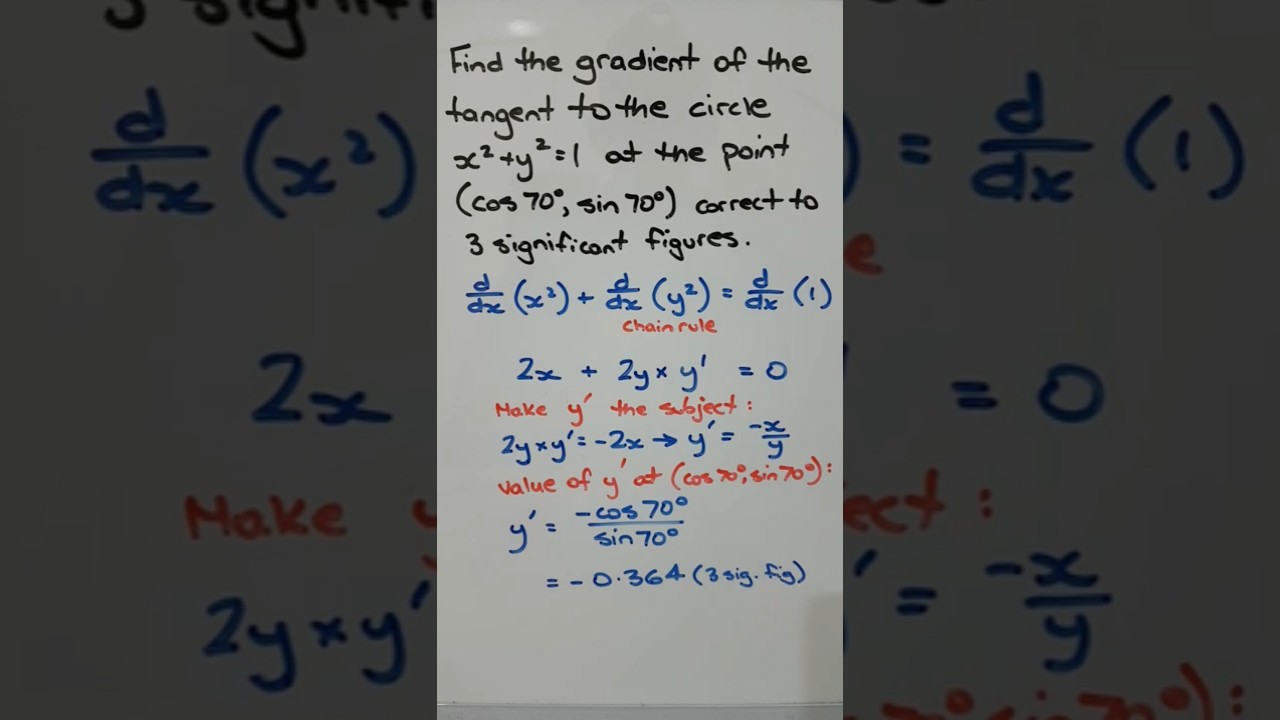 Find the gradient of the
tangent to the circle
x²+y²=1 at the point
(cos 70°, sin 70°) correct to
3 significant figures.
d/dx (x²) + d/dx (y²) = d/dx (1)
chain rule
2x + 2y × y' = 0
Make y' the subject:
2y×y'=-2x → y' = -x/y
value of y' at (cos 70°, sin 70°):
y' = -cos 70°/sin 70°
= -0.364 (3 sig. fig)